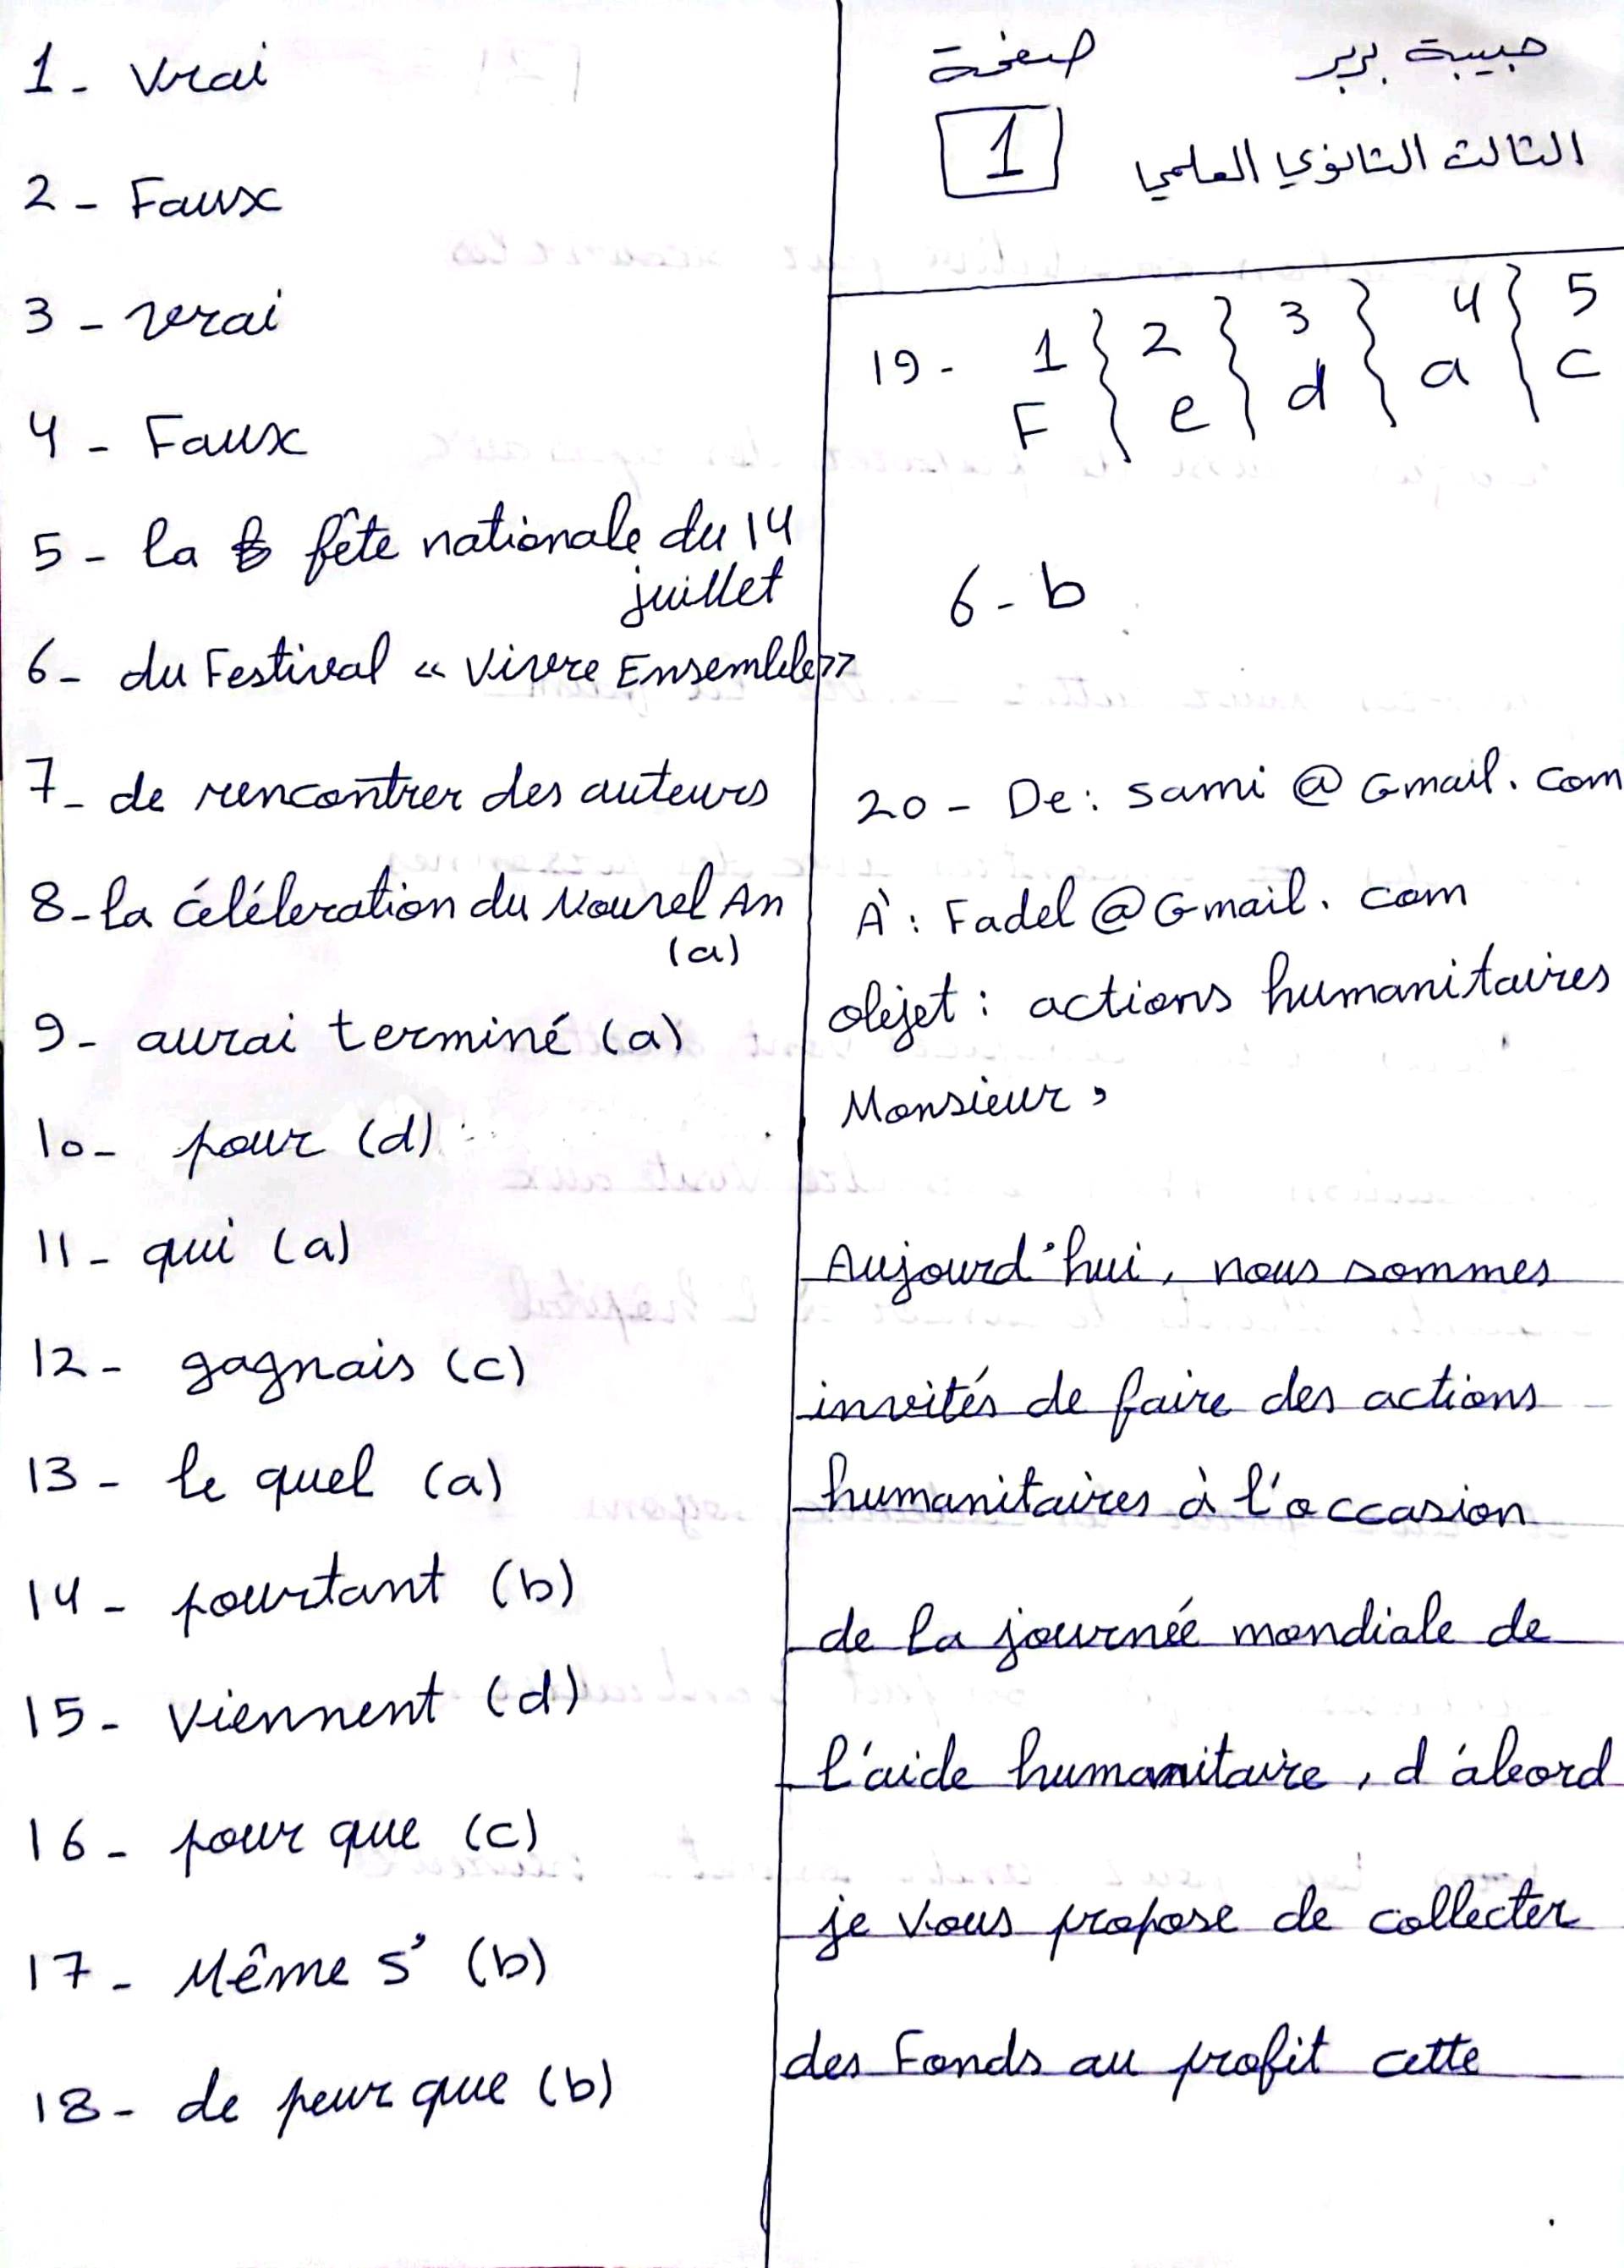 حبيبة بربر
صفحة
1
الثالث الثانوي العلمي
1 - Vrai
2 - Faux
3 - vrai
4 - Faux
5 - la fête nationale du 14
juillet
6 - du Festival « Vivre Ensemble »
7 - de rencontrer des auteurs
8 - la célébration du Nouvel An
(a)
9 - aurai terminé (a)
10 - pour (d)
11 - qui (a)
12 - gagnais (c)
13 - le quel (a)
14 - pourtant (b)
15 - viennent (d)
16 - pour que (c)
17 - Même s' (b)
18 - de peur que (b)
19 - 1 } 2 } 3 } 4 } 5
F } e } d } a } c
6 - b
20 - De : sami @ Gmail. com
À : Fadel @ Gmail. com
objet : actions humanitaires
Monsieur,
Aujourd'hui, nous sommes
invités de faire des actions
humanitaires à l'occasion
de la journée mondiale de
l'aide humanitaire, d'abord
je vous propose de collecter
des Fonds au profit cette